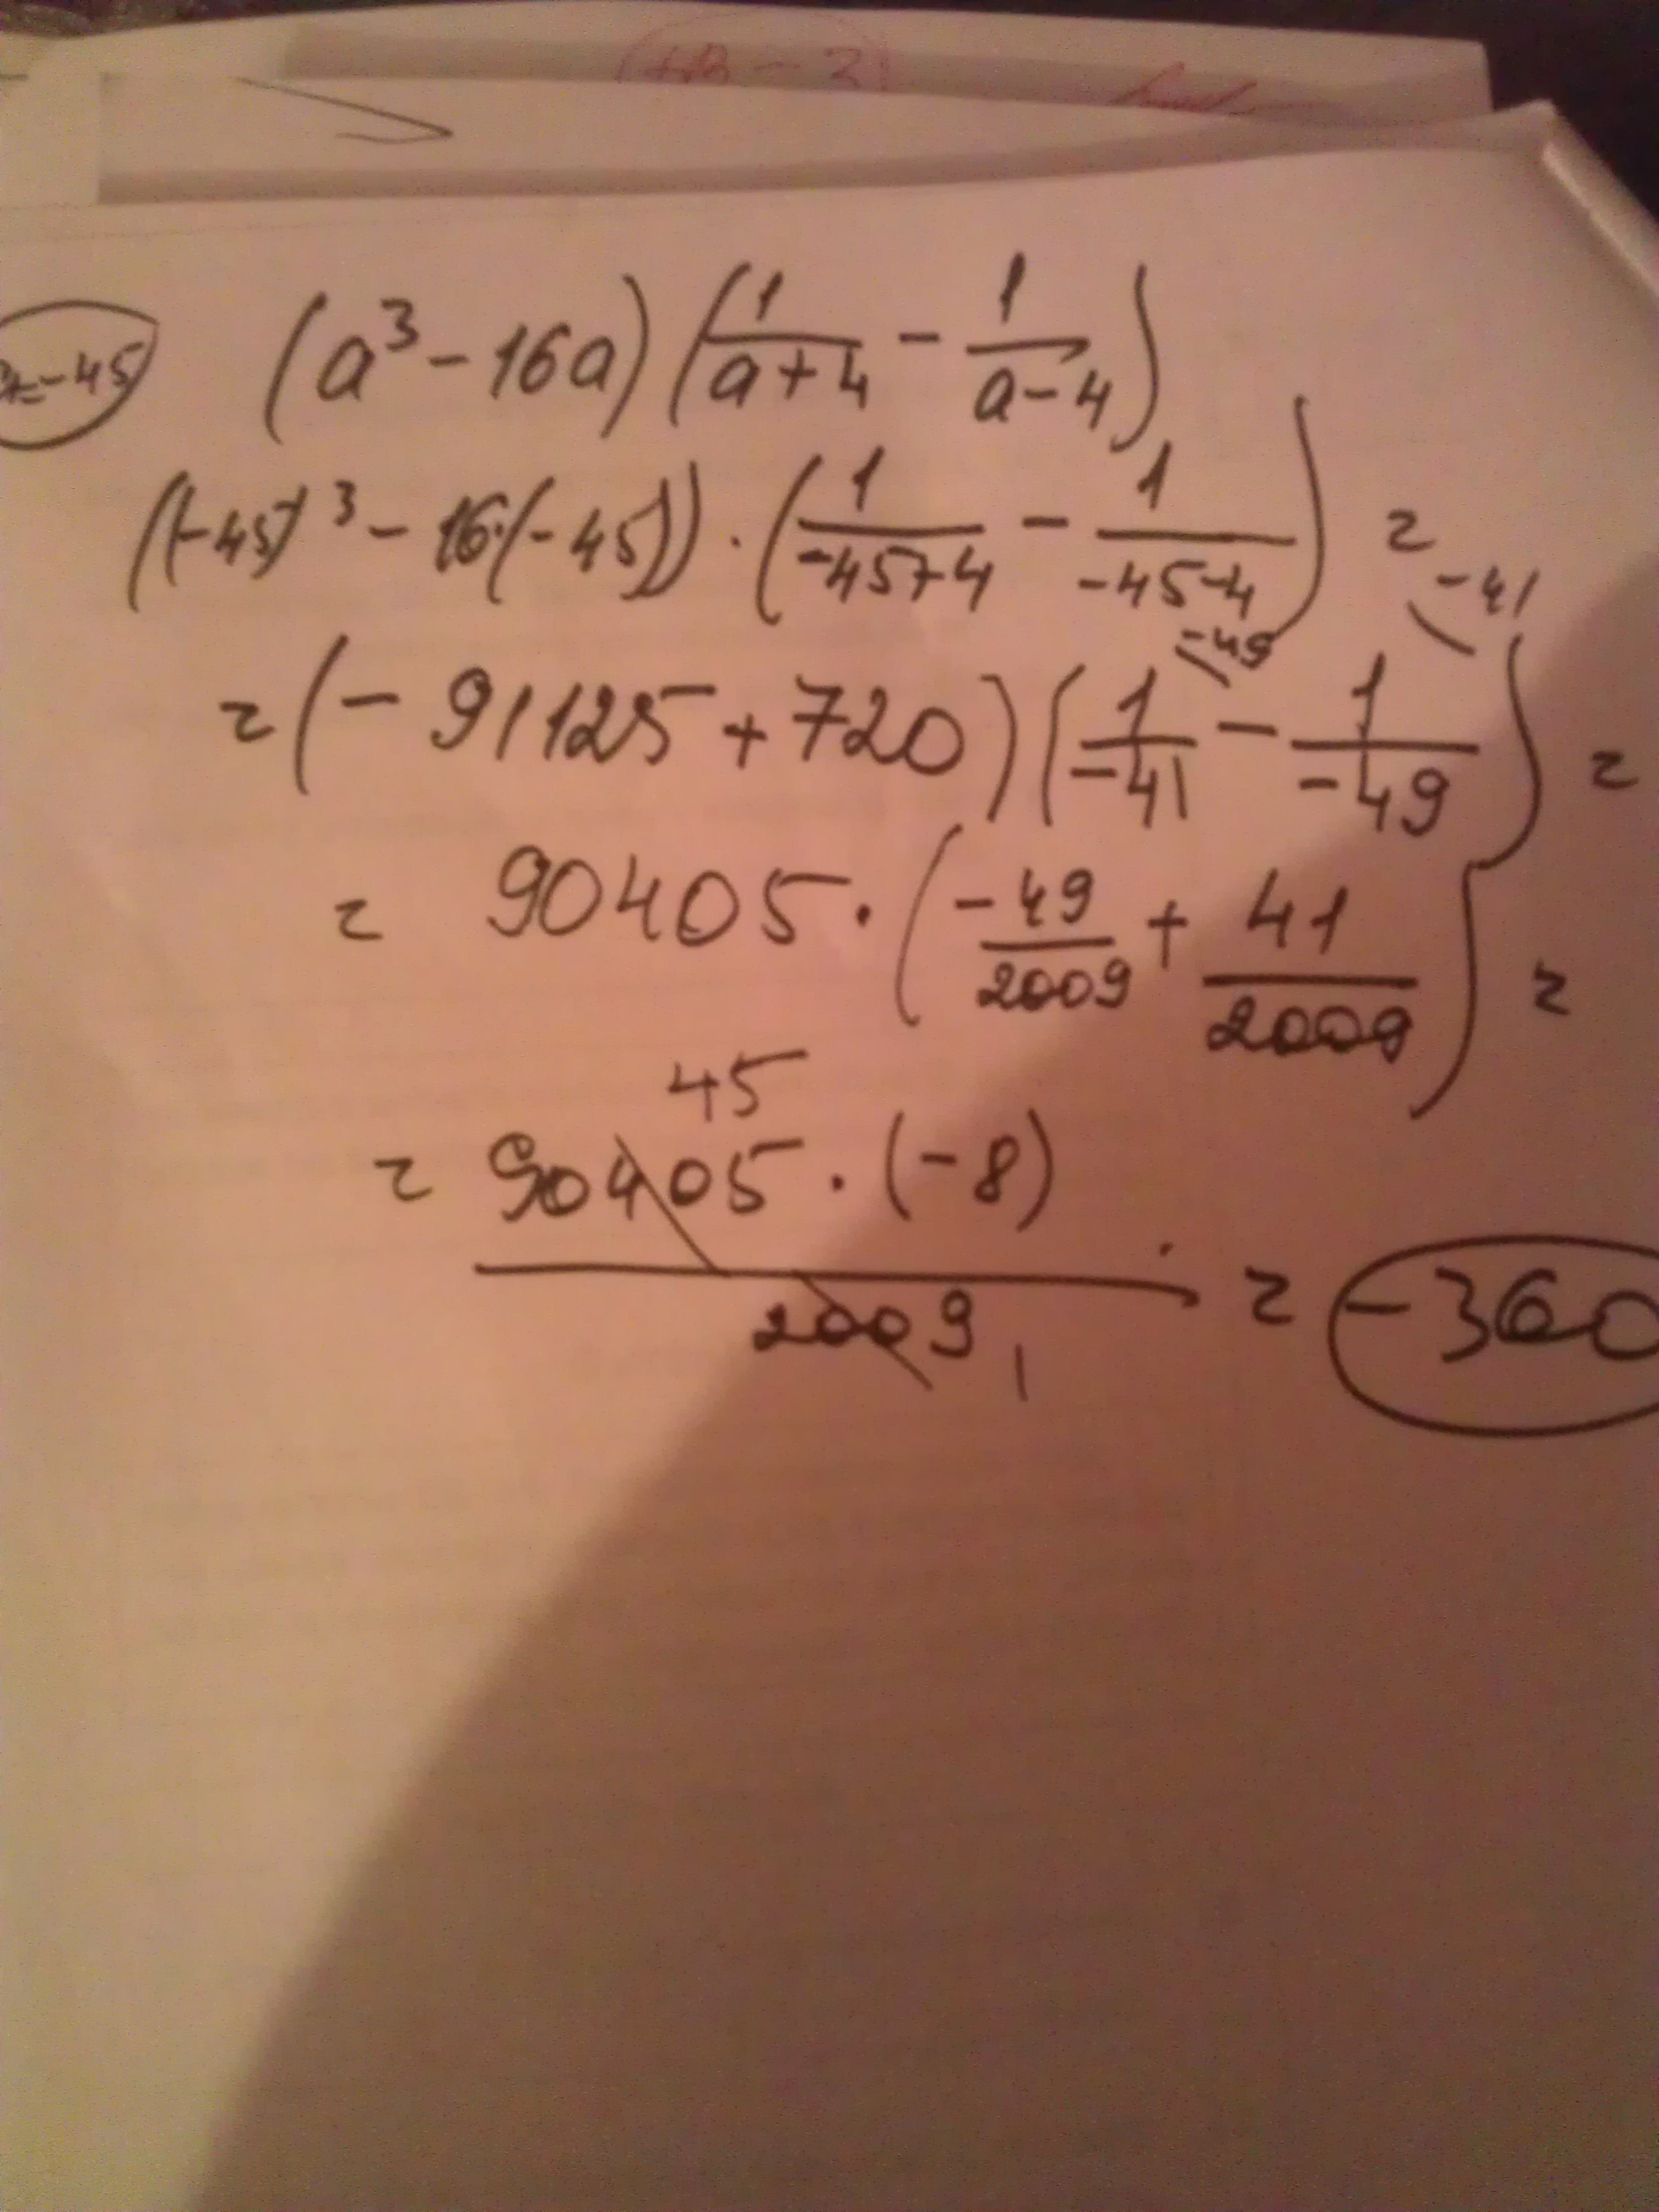 a=-45
(a³-16a)(1/(a+4) - 1/(a-4))
((-45)³-16·(-45))·(1/(-45+4) - 1/(-45-4)) =
-49 -41
=(-91125+720)(1/-41 - 1/-49) =
= 90405·(-49/2009 + 41/2009) =
45
= 90405·(-8)/2009 = -360
1